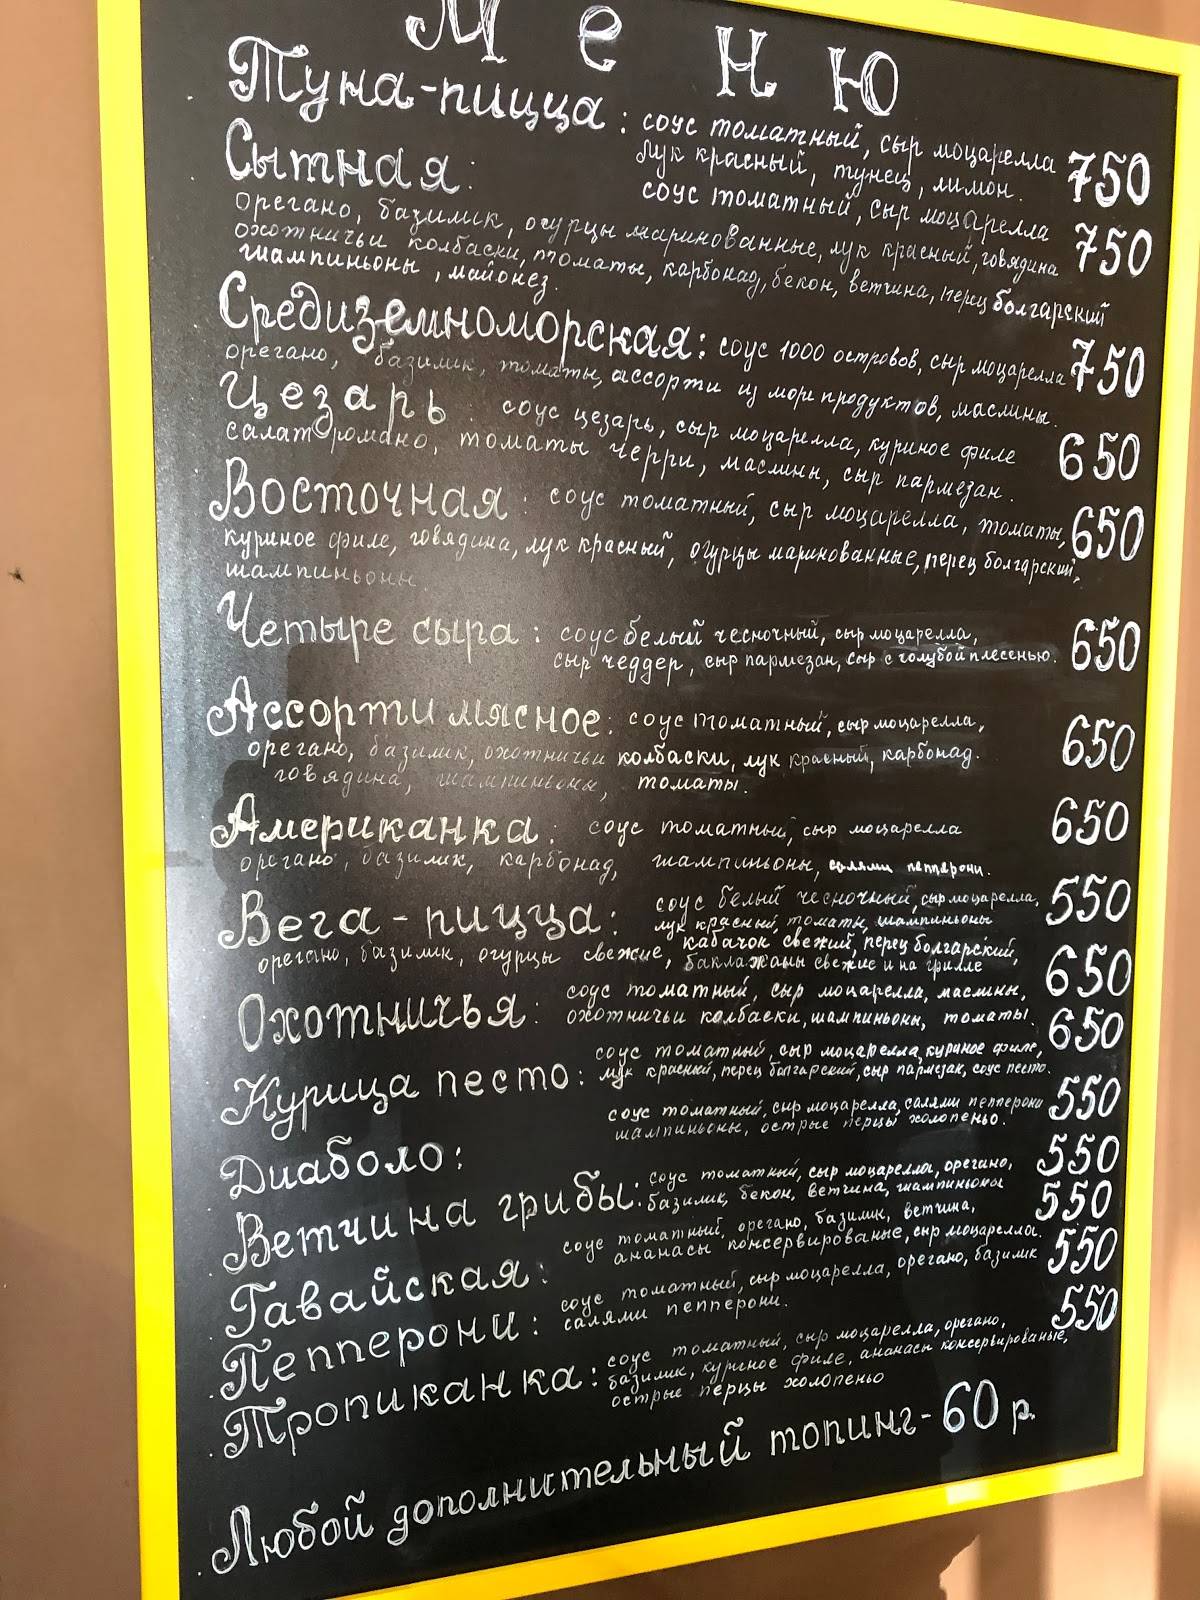 Меню
Туна-пицца: соус томатный, сыр моцарелла 750
лук красный, тунец, лимон.
Сытная: соус томатный, сыр моцарелла 750
орегано, базилик, огурцы маринованные, лук красный, говядина
охотничьи колбаски, томаты, карбонад, бекон, ветчина, перец болгарский
шампиньоны, майонез.
Средиземноморская: соус 1000 островов, сыр моцарелла 750
орегано, базилик, томаты, ассорти из море продуктов, маслины.
Цезарь: соус цезарь, сыр моцарелла, куриное филе 650
салат романо, томаты черри, маслины, сыр пармезан.
Восточная: соус томатный, сыр моцарелла, томаты, 650
куриное филе, говядина, лук красный, огурцы маринованные, перец болгарский,
шампиньоны
Четыре сыра: соус белый чесночный, сыр моцарелла, 650
сыр чеддер, сыр пармезан, сыр с голубой плесенью.
Ассорти мясное: соус томатный, сыр моцарелла, 650
орегано, базилик, охотничьи колбаски, лук красный, карбонад.
говядина, шампиньоны, томаты.
Американка: соус томатный, сыр моцарелла 650
орегано, базилик, карбонад, шампиньоны, салями пепперони.
Вега-пицца: соус белый чесночный, сыр моцарелла, 550
лук красный, томаты, шампиньоны
орегано, базилик, огурцы свежие, кабачок свежий, перец болгарский,
баклажаны свежие и на грилле
Охотничья: соус томатный, сыр моцарелла, маслины, 650
охотничьи колбаски, шампиньоны, томаты.
Курица песто: соус томатный, сыр моцарелла, куриное филе, 650
лук красный, перец болгарский, сыр пармезан, соус песто.
Диаболо: соус томатный, сыр моцарелла, салями пепперони 550
шампиньоны, острые перцы холопеньо.
Ветчина грибы: соус томатный, сыр моцарелла, орегано, 550
базилик, бекон, ветчина, шампиньоны
Гавайская: соус томатный, орегано, базилик, ветчина, 550
ананасы консервированые, сыр моцарелла.
Пепперони: соус томатный, сыр моцарелла, орегано, базилик 550
салями пепперони.
Тропиканка: соус томатный, сыр моцарелла, орегано, 550
базилик, куриное филе, ананасы консервированые,
острые перцы холопеньо
Любой дополнительный топинг - 60 р.